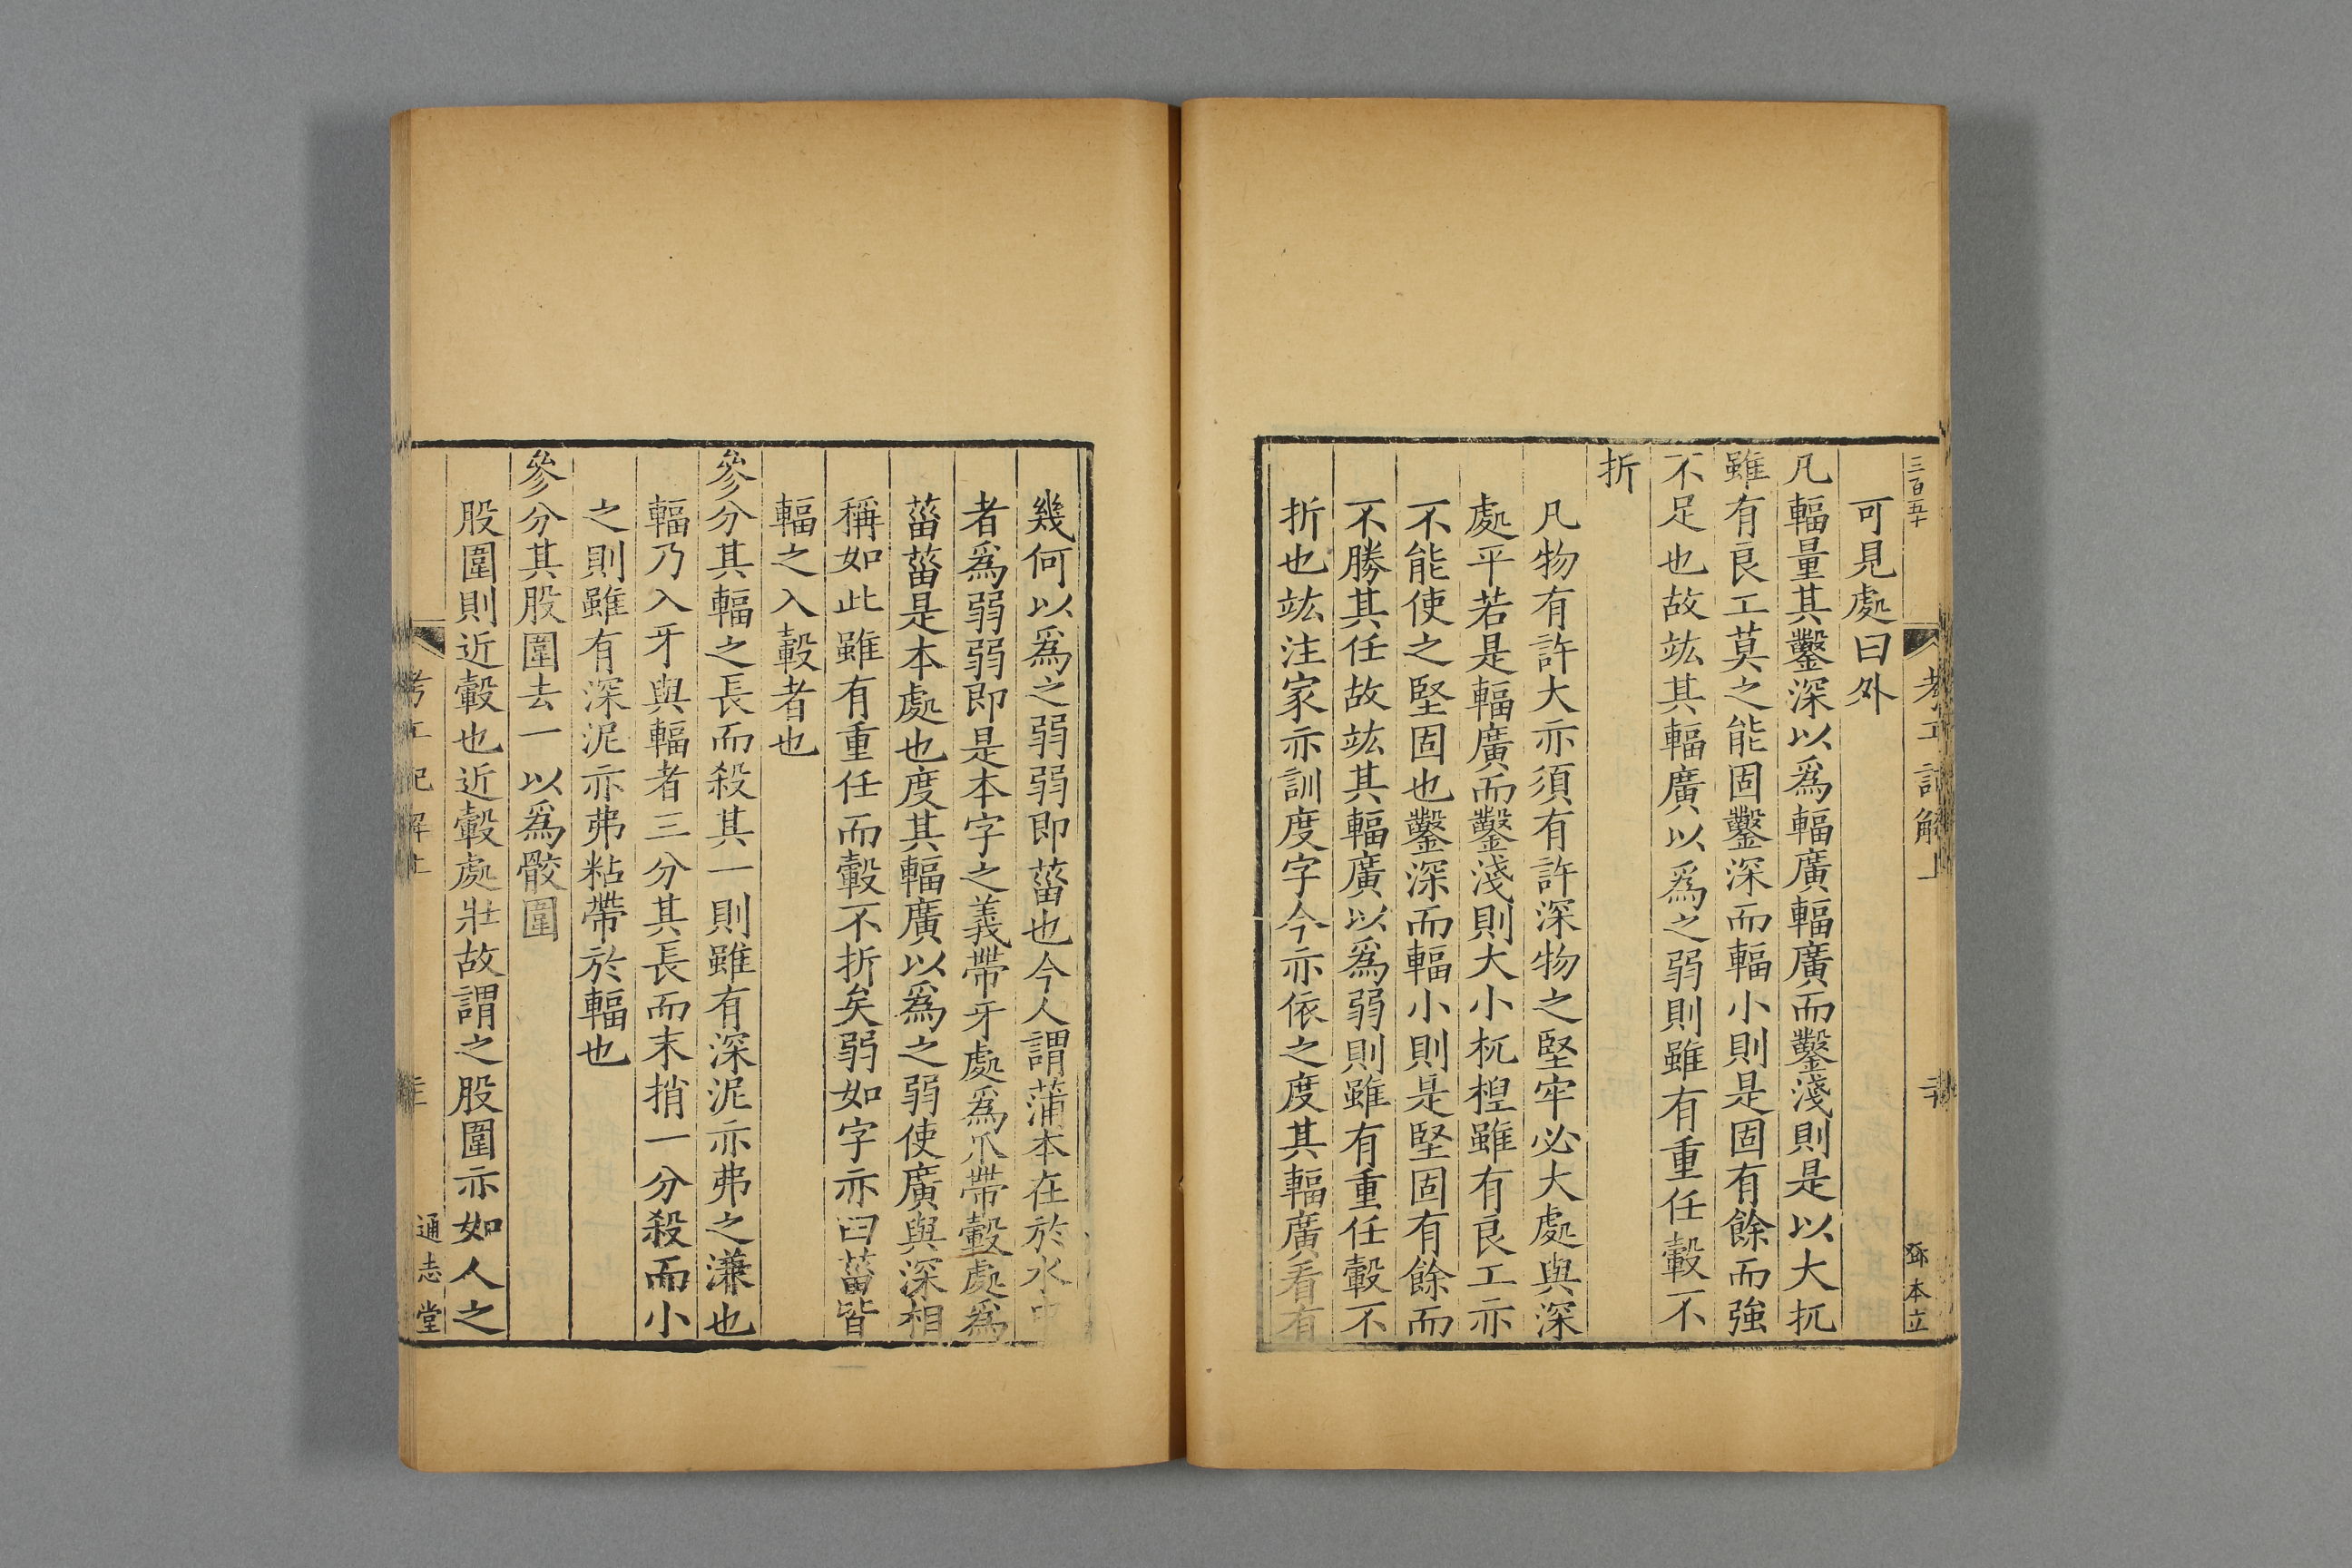 三百五十
考工記解上
可見處曰外
凡輻量其鑿深以爲輻廣輻廣而鑿淺則是以大扤
雖有良工莫之能固鑿深而輻小則是固有餘而強
不足也故竑其輻廣以爲之弱則雖有重任轂不
折
凡物有許大亦須有許深物之堅牢必大處與深
處平若是輻廣而鑿淺則大小杌楻雖有良工亦
不能使之堅固也鑿深而輻小則是堅固有餘而
不勝其任故竑其輻廣以爲弱則雖有重任轂不
折也竑注家亦訓度字今亦依之度其輻廣看有
幾何以爲之弱弱即菑也今人謂蒲本在於水中
者爲弱弱即是本字之義帶牙處爲爪帶轂處爲
菑菑是本處也度其輻廣以爲之弱使廣與深相
稱如此雖有重任而轂不折矣弱如字亦曰菑皆
輻之入轂者也
參分其輻之長而殺其一則雖有深泥亦弗之溓也
輻乃入牙與輻者三分其長而末捎一分殺而小
之則雖有深泥亦弗粘帶於輻也
參分其股圍去一以爲骹圍
股圍則近轂也近轂處壯故謂之股圍亦如人之
考工記解上
通志堂